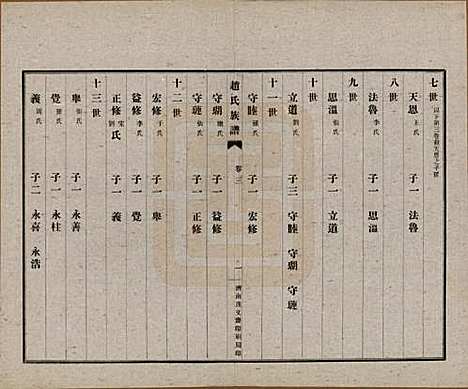 七世
天恩 王氏 子一 法魯
八世
法魯 李氏 子一 思溫
九世
思溫 張氏 子一 立道
十世
立道 劉氏 子三 守睦 守瑚 守璉
十一世
守睦 子一 宏修
趙氏族譜 卷三 一 濟南 文齋印刷局印
守瑚 子一 益修
守璉 張氏 子一 正修
十二世
宏修 于氏 子一 舉
益修 李氏 子一 覺
正修 宋氏 劉氏 子一 義
十三世
舉 張氏 子一 永善
覺 子一 永柱
義 周氏 子二 永喜 永浩